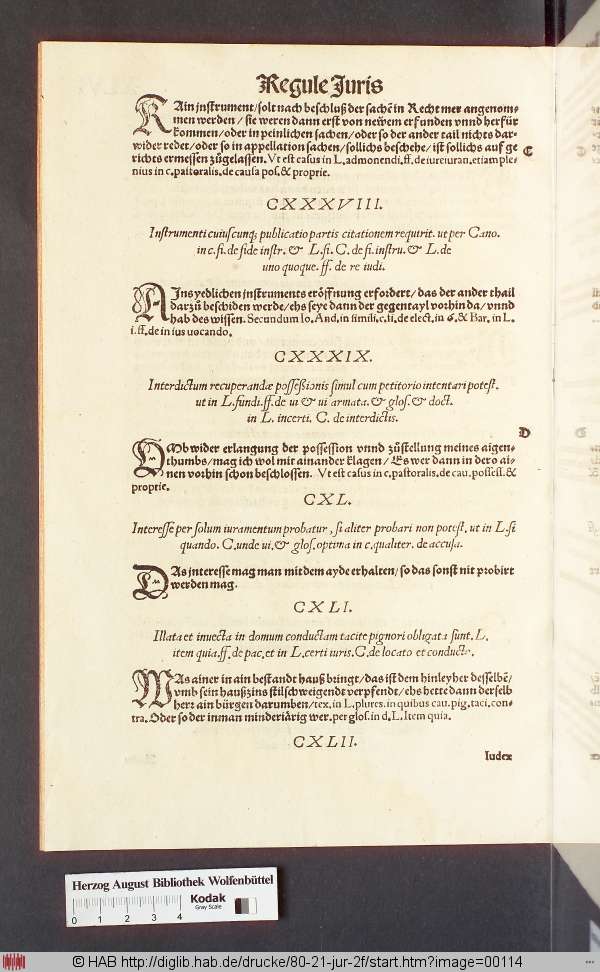 Regule Juris
KAin instrument/solt nach beschluß der sachē in Recht mer angenom-
men werden/ sie weren dann erst von newem erfunden vnnd herfür
kommen/oder in peinlichen sachen/oder so der ander tail nichts dar-
wider redet/oder so in appellation sachen/sollichs beschehe/ist sollichs auf ge C
richts ermessen zůgelassen. Vt est casus in L. admonendi. ff. de iureiuran. etiam ple-
nius in c. pastoralis. de causa pos. & proprie.
CXXXVIII.
Instrumenti cuiuscunq; publicatio partis citationem requirit. ut per Cano.
in c. fi. de fide instr. & L. fi. C. de fi. instru. & L. de
uno quoque. ff. de re iudi.
AIns yedlichen instruments eröffnung erfordert/das der ander thail
darzů beschiden werde/ehs seye dann der gegentayl vorhin da/vnnd
hab des wissen. Secundum Io. And. in simili. c. ii. de elect. in 6. & Bar. in L.
i. ff. de in ius uocando.
CXXXIX.
Interdictum recuperandæ possessionis simul cum petitorio intentari potest.
ut in L. fundi. ff. de ui & ui armata. & glos. & doct.
in L. incerti. C. de interdictis.
D
OMb wider erlangung der possession vnnd zůstellung meines aigen-
thumbs/mag ich wol mit ainander klagen/ Es wer dann in dero ai-
nen vorhin schon beschlossen. Vt est casus in c. pastoralis. de cau. possess. &
proprie.
CXL.
Interesse per solum iuramentum probatur, si aliter probari non potest. ut in L. si
quando. C. unde ui. & glos. optima in c. qualiter. de accusa.
DAs interesse mag man mit dem ayde erhalten/so das sonst nit probirt
werden mag.
CXLI.
Illata et inuecta in domum conductam tacite pignori obligata sunt. L.
item quia. ff. de pac. et in L. certi iuris. C. de locato et conducto.
WAs ainer in ain bestandt hauß bringt/das ist dem hinleyher desselbē/
vmb sein haußzins stilschweigendt verpfendt/ehs hette dann derselb
herr ain bürgen darumben/tex. in L. plures. in quibus cau. pig. taci. con-
tra. Oder so der inman minderiärig wer. per glos. in d. L. Item quia.
CXLII.
Iudex
Herzog August Bibliothek Wolfenbüttel
0 1 2 3 4
Kodak
Gray Scale
© HAB http://diglib.hab.de/drucke/80-21-jur-2f/start.htm?image=00114